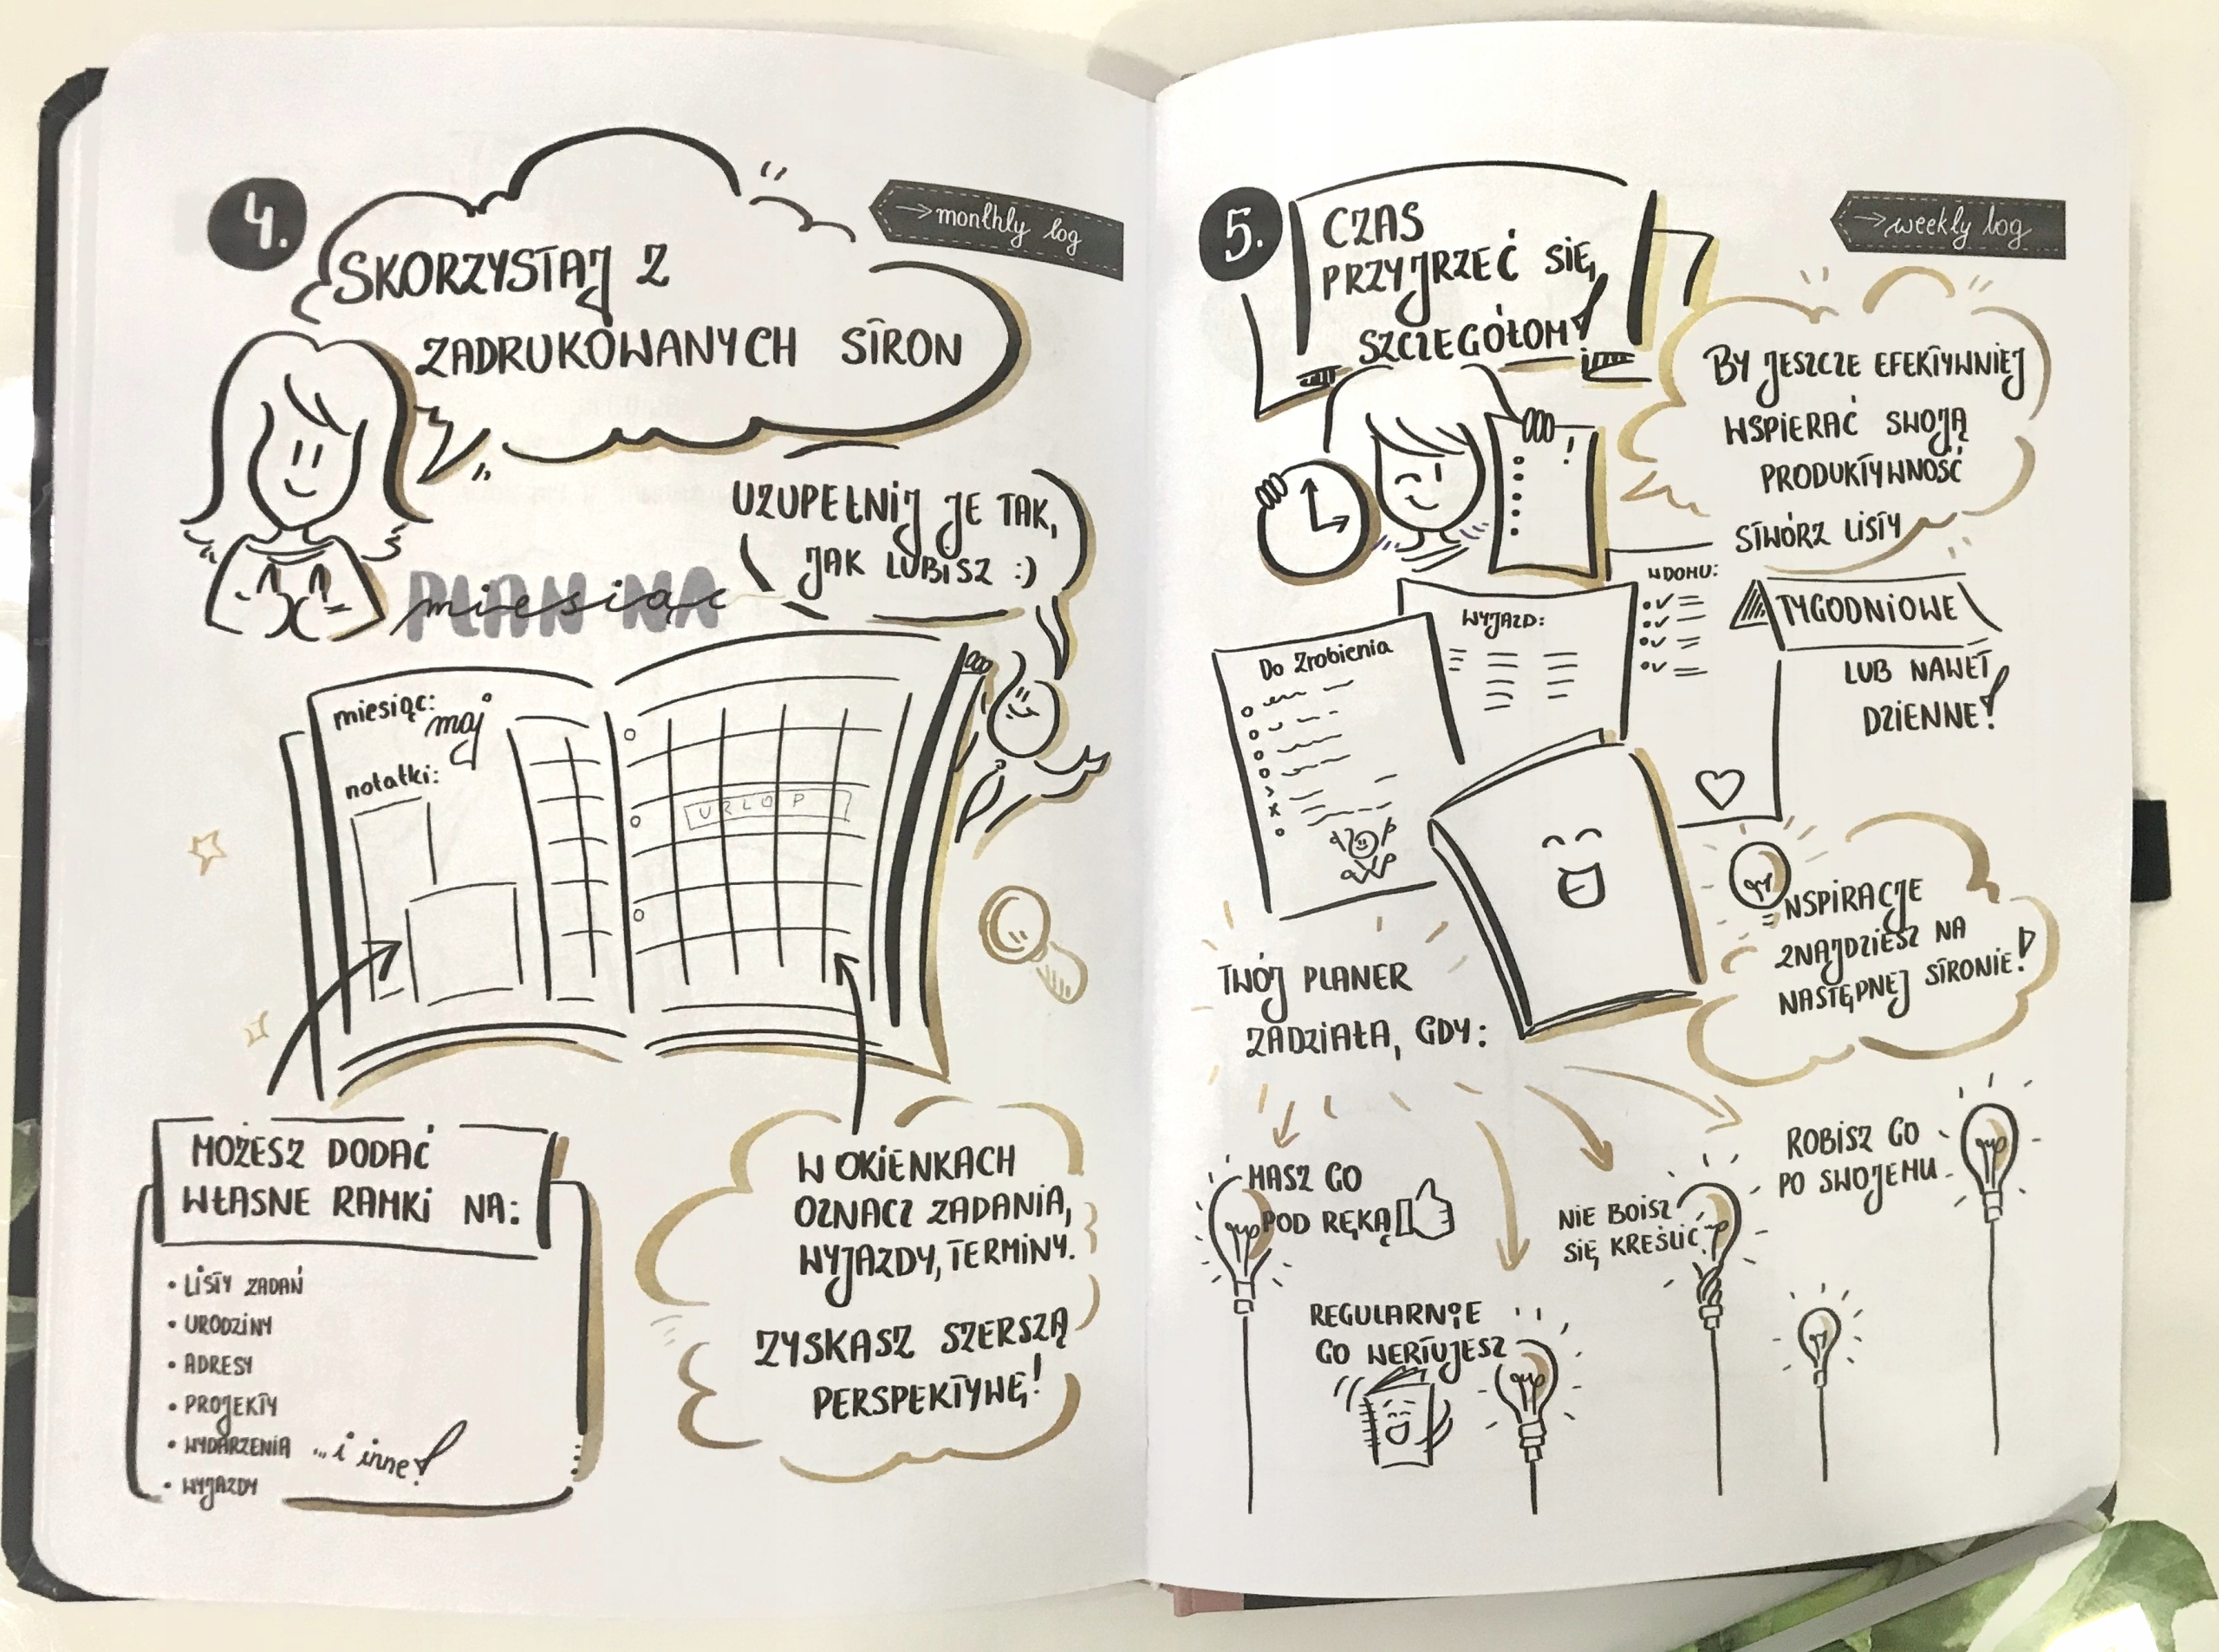 4.
SKORZYSTAJ Z
ZADRUKOWANYCH STRON
→monthly log
UZUPEŁNIJ JE TAK,
JAK LUBISZ :)
PLAN NA
miesiąc
miesiąc:
maj
notatki:
URLOP
MOŻESZ DODAĆ
WŁASNE RAMKI NA:
• LISTY ZADAŃ
• URODZINY
• ADRESY
• PROJEKTY
• WYDARZENIA
...i inne!
• WYJAZDY
W OKIENKACH
OZNACZ ZADANIA,
WYJAZDY, TERMINY.
ZYSKASZ SZERSZĄ
PERSPEKTYWĘ!
5.
CZAS
PRZYJRZEĆ SIĘ
SZCZEGÓŁOM!
→weekly log
BY JESZCZE EFEKTYWNIEJ
WSPIERAĆ SWOJĄ
PRODUKTYWNOŚĆ
STWÓRZ LISTY
TYGODNIOWE
LUB NAWET
DZIENNE!
!
Do Zrobienia
WYJAZD:
W DOMU:
INSPIRACJE
ZNAJDZIESZ NA
NASTĘPNEJ STRONIE!
TWÓJ PLANER
ZADZIAŁA, GDY:
MASZ GO
POD RĘKĄ
REGULARNIE
GO WERTUJESZ
NIE BOISZ
SIĘ KREŚLIĆ
ROBISZ GO
PO SWOJEMU